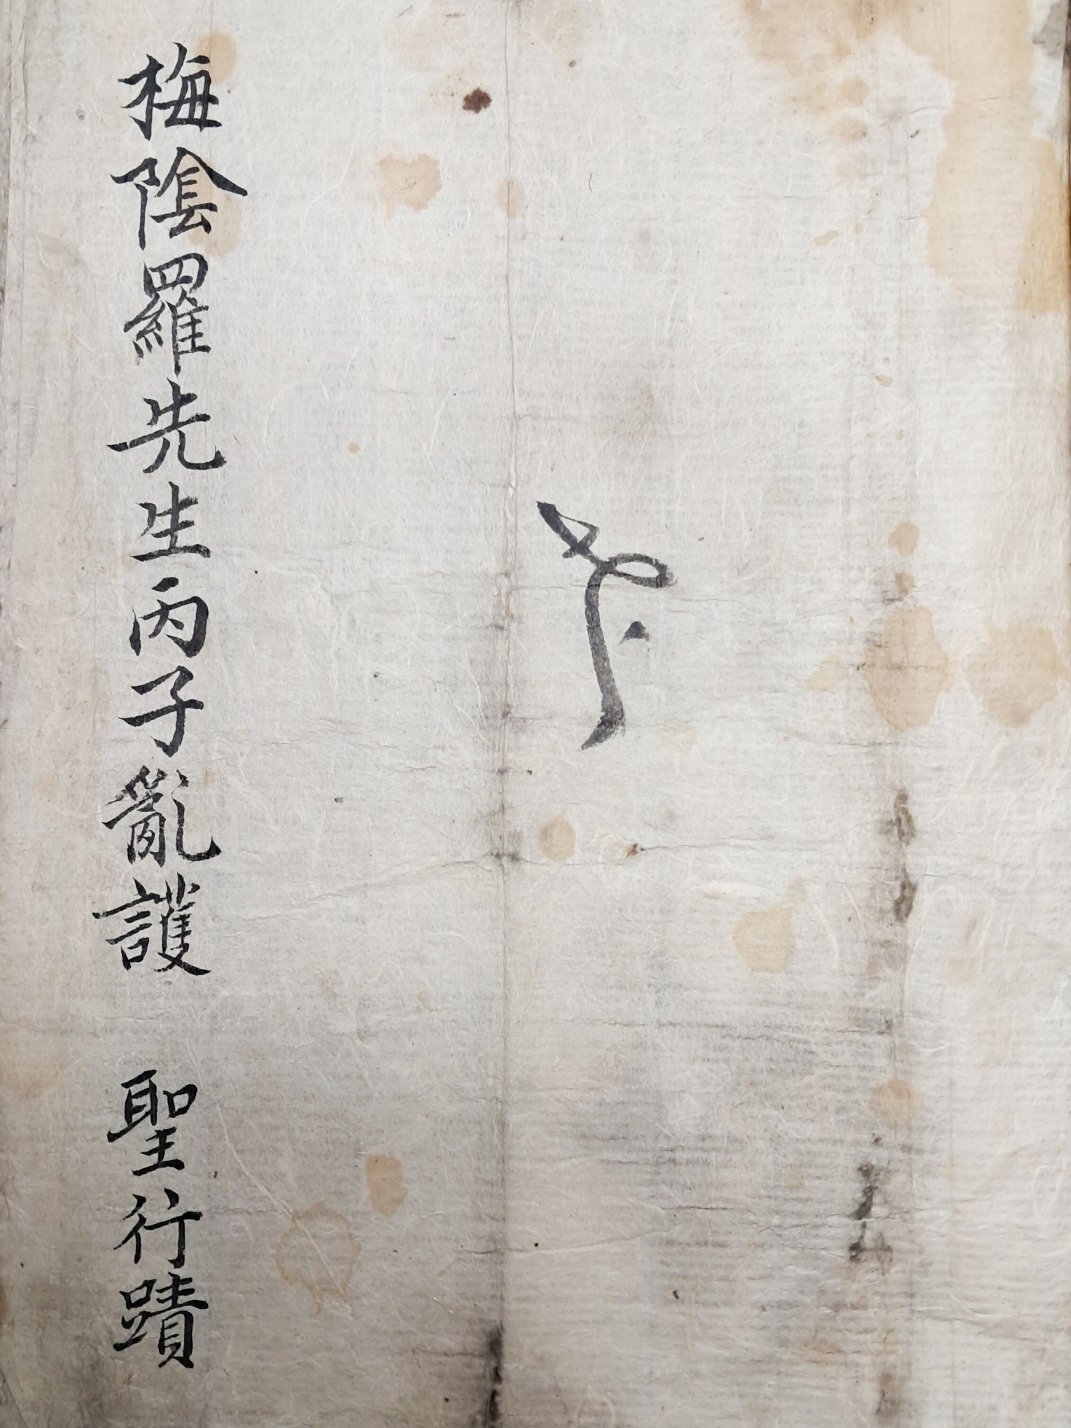 梅陰羅先生丙子亂護 聖行蹟